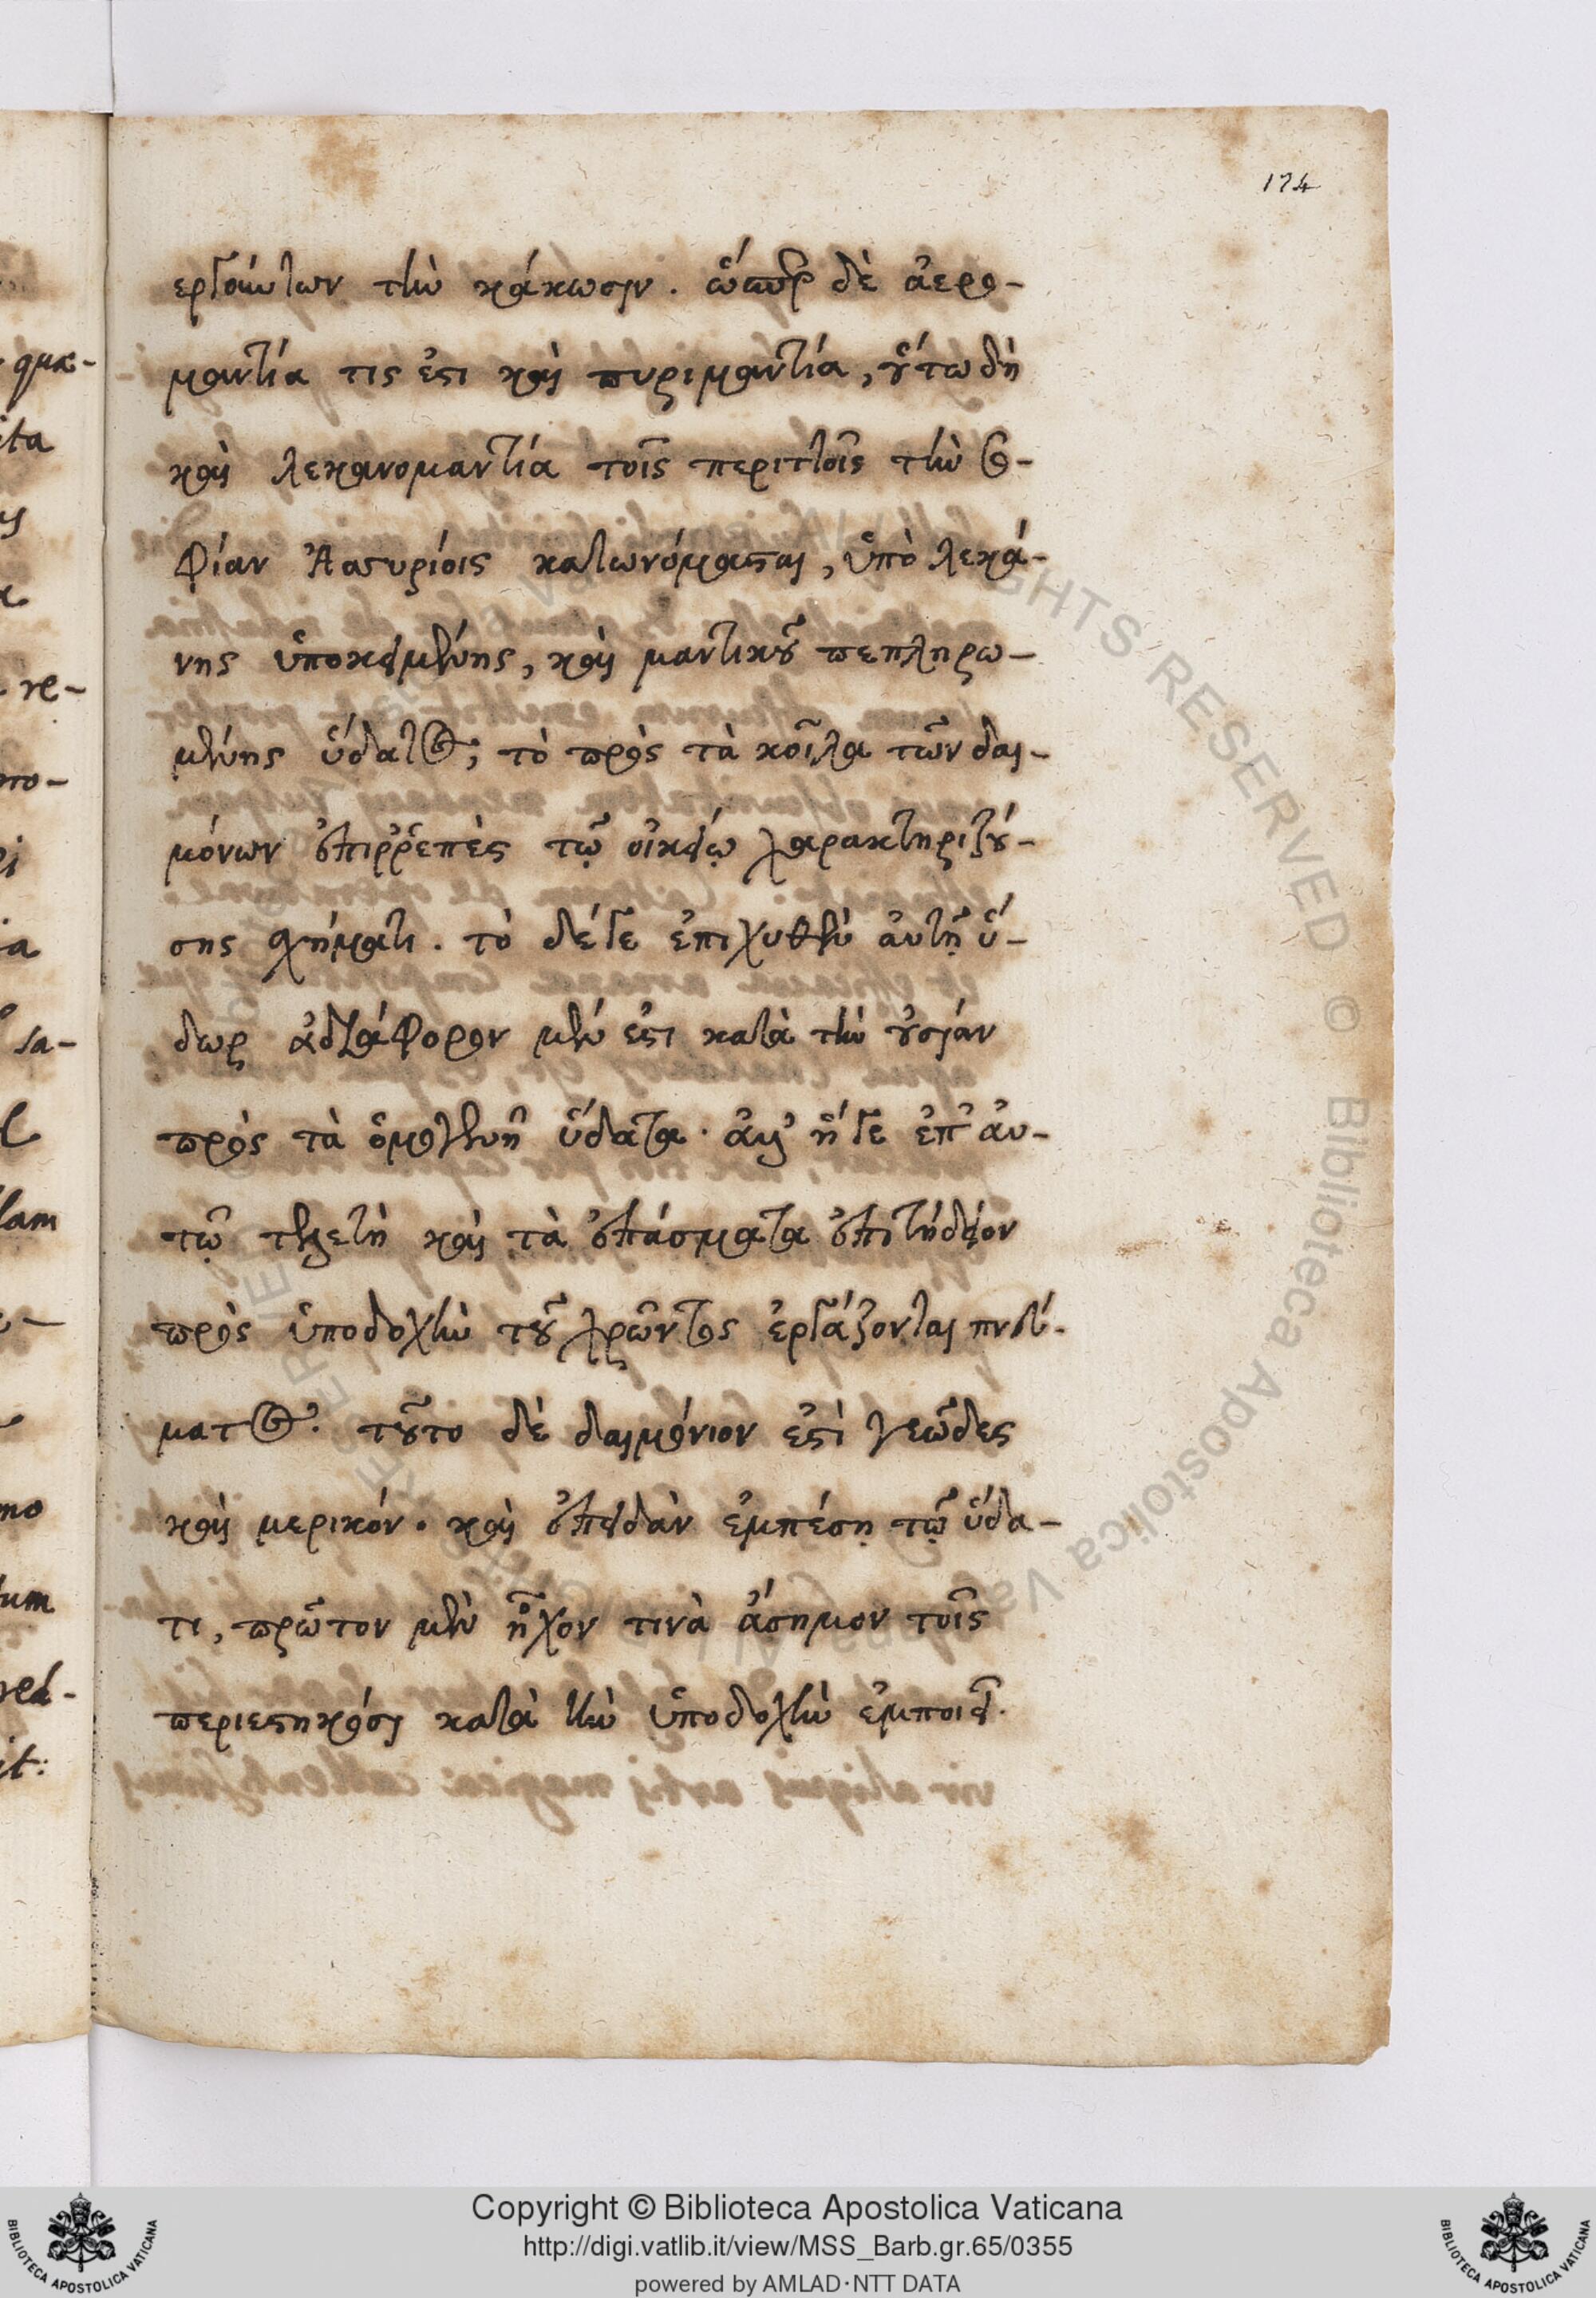 174
εργούντων τὴν κάκωσιν. ὥσπερ δὲ ἀερο-
μαντία τις ἐστι καὶ πυριμαντία, οὕτω δὴ
καὶ λεκανομαντία τοῖς περιττοῖς τὴν σο-
φίαν Ἀσσυρίοις κατωνόμασται, ὑπὸ λεκά-
νης ὑποκειμένης, καὶ μαντικοῦ πεπληρω-
μένης ὕδατος, τὸ πρὸς τὰ κοῖλα τῶν δαι-
μόνων ἐπιῤῥεπὲς τῷ οἰκείῳ χαρακτηριζού-
σης σχήματι. τὸ δέ γε ἐπιχυθὲν αὐτῇ ὕ-
δωρ ἀδιάφορον μέν ἐστι κατὰ τὴν οὐσίαν
πρὸς τὰ ὁμογενῆ ὕδατα. ἀλλ' ἥ γε ἐπ' αὐ-
τῷ τελετὴ καὶ τὰ ἐπάσματα ἐπιτήδειον
πρὸς ὑποδοχὴν τοῦ χρῶντος ἐργάζονται πνεύ-
ματος. τοῦτο δὲ δαιμόνιον ἐστὶ γεῶδες
καὶ μερικόν. καὶ ἐπειδὰν ἐμπέσῃ τῷ ὕδα-
τι, πρῶτον μὲν ἦχον τινὰ ἄσημον τοῖς
περιεστηκόσι κατὰ τὴν ὑποδοχὴν ἐμποιεῖ.
qua-
ita
re-
sa-
lam
no
tum
it:
ALL RIGHTS RESERVED © Biblioteca Apostolica Vaticana
Copyright © Biblioteca Apostolica Vaticana
http://digi.vatlib.it/view/MSS_Barb.gr.65/0355
powered by AMLAD·NTT DATA
BIBLIOTECA APOSTOLICA VATICANA
BIBLIOTECA APOSTOLICA VATICANA